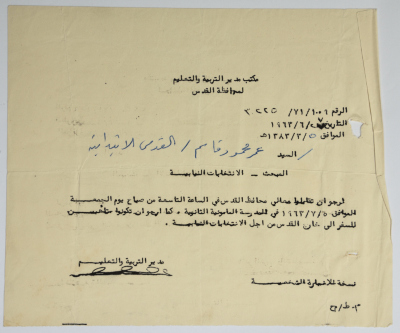 مكتب مدير التربية والتعليم
لمحافظة القدس
الرقم ٧١/١٠٥٦/
التاريخ /٦/١٩٦٣
الموافق ١٣٨٣/٢/٥هـ
السيد عمر محمود قاسم / القدس الابتدائية
المبحث - الانتخابات النيابية
ارجو ان تقابلوا معالي محافظ القدس في الساعة التاسعة من صباح يوم الجمعة
الموافق ١٩٦٣/٧/٥ في المدرسة المأمونية الثانوية، كما ارجو ان تكونوا
للسفر الى خارج القدس من اجل الانتخابات النيابية.
مدير التربية والتعليم
نسخة للاضبارة الشخصية
م.ط/